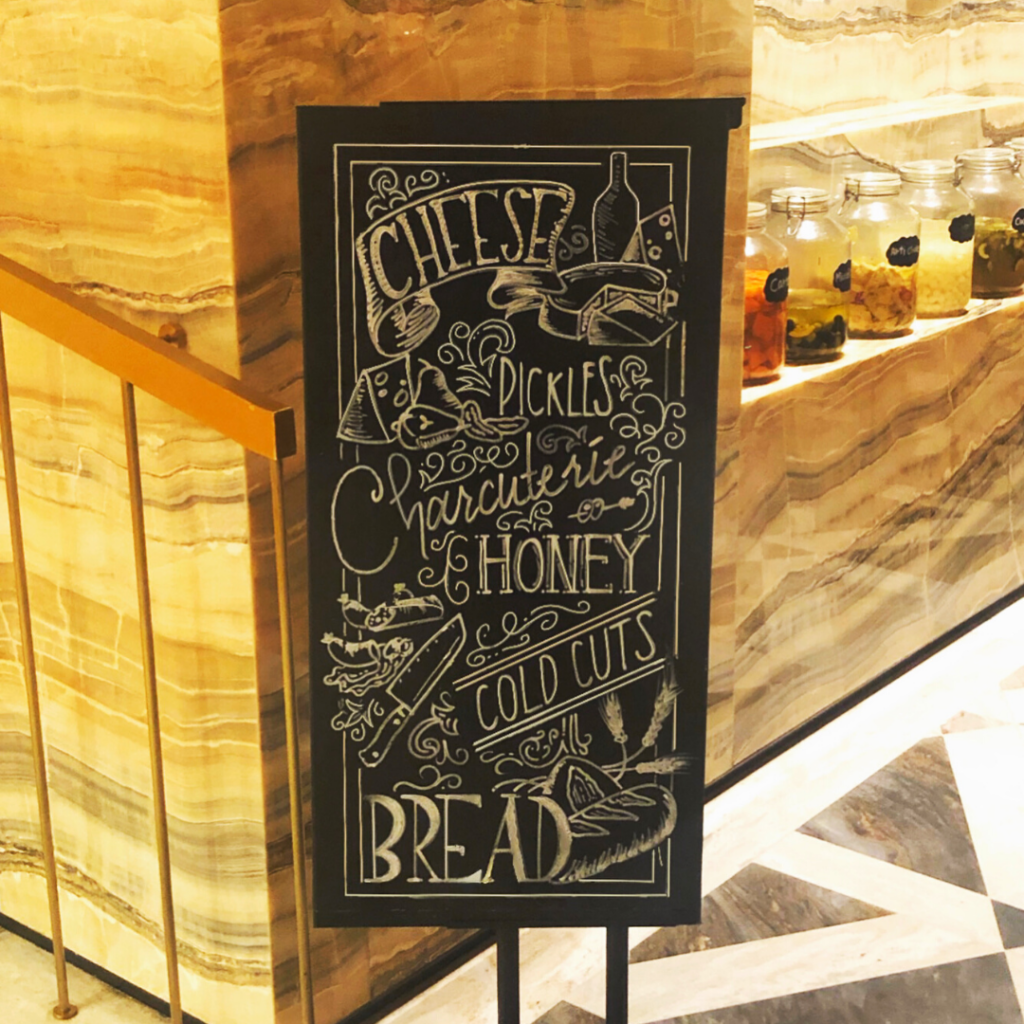 CHEESE
PICKLES
Charcuterie
HONEY
COLD CUTS
BREAD